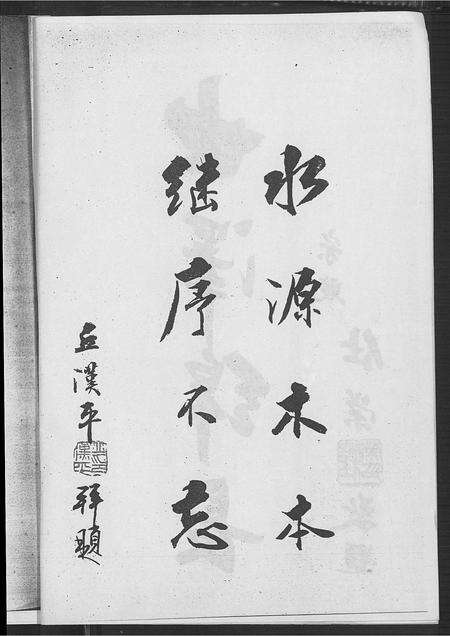 水源木本
继序不忘
丘漢平
拜題